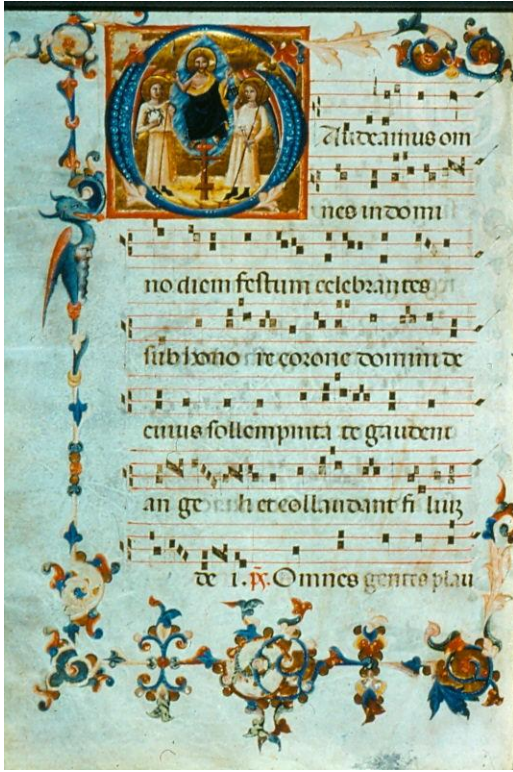 GAudeamus om
nes in domi
no diem festum celebrantes
sub hono re corone domini de
cuius sollempnita te gaudent
an ge li et collaudant fi liuz
de i. p̄s. Omnes gentes plau